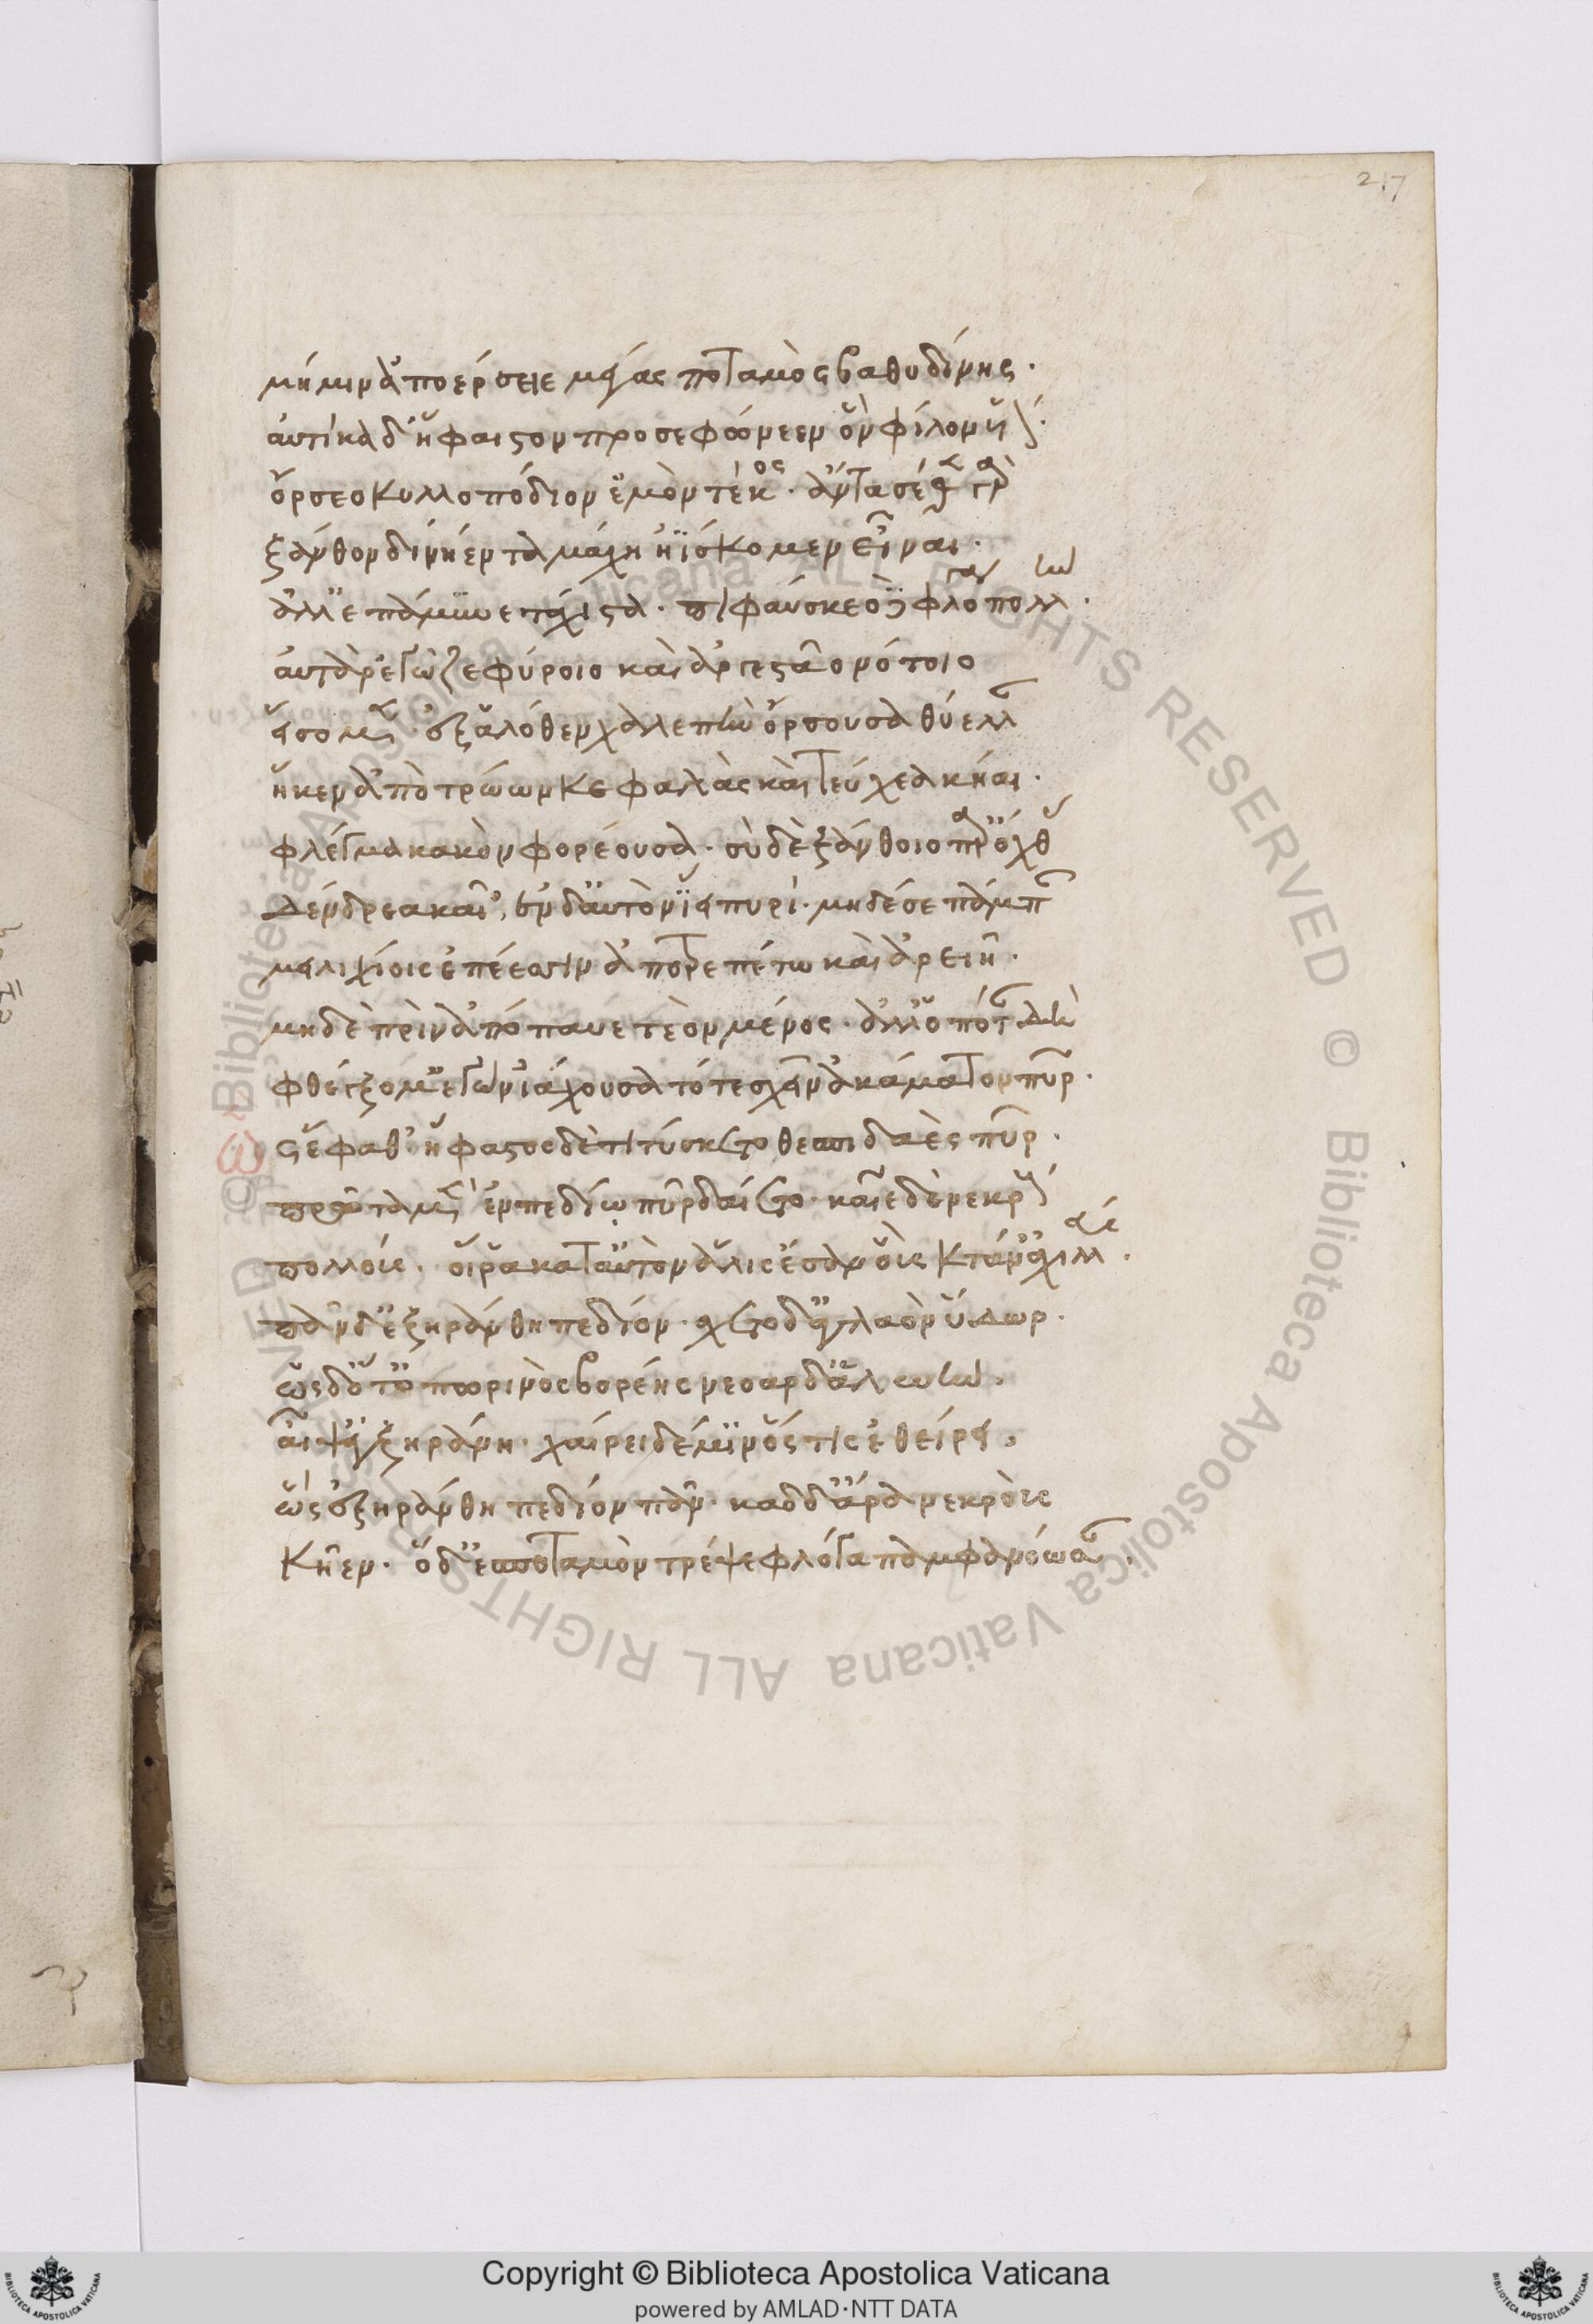 217
μήμιν ἀποέρσειε μέγας ποταμὸς βαθυδίνης·
αὐτίκα δ' ἥφαιστον προσεφώνεεν ὃν φίλον υἱόν·
ὄρσεο κυλλοπόδιον ἐμὸν τέκος· ἄντα σέθεν γὰρ
ξάνθον δινήεντα μάχη ἠΐσκομεν εἶναι·
ἀλλ' ἐπάμυνε τάχιστα· πιφαύσκεο δὲ φλόγα πολλήν·
αὐτὰρ ἐγὼ ζεφύροιο καὶ ἀργεστᾶο νότοιο
εἴσομαι ἐξ ἁλόθεν χαλεπὴν ὄρσουσα θύελλαν
ἥ κεν ἀπὸ τρώων κεφαλὰς καὶ τεύχεα κήαι·
φλέγμα κακὸν φορέουσα· σὺ δὲ ξάνθοιο παρ' ὄχθας
δένδρεα καῖ', ἐν δ' αὐτὸν ἵει πυρί· μηδέ σε πάμπαν
μειλιχίοις ἐπέεσσιν ἀποτρεπέτω καὶ ἀρειῆ·
μηδὲ πρὶν ἀπόπαυε τεὸν μένος· ἀλλ' ὁπότ' ἂν δὴ
φθέγξομ' ἐγὼν ἰάχουσα τότε σχεῖν ἀκάματον πῦρ·
ὣς ἔφαθ' ἥφαιστος δὲ τιτύσκετο θεσπιδαὲς πῦρ·
πρῶτα μὲν ἐν πεδίῳ πῦρ δαίετο· καῖε δὲ νεκροὺς
πολλούς· οἵ ῥα κατ' αὐτὸν ἅλις ἔσαν οὓς κτάν' ἀχιλλεύς·
πᾶν δ' ἐξηράνθη πεδίον· σχέτο δ' ἀγλαὸν ὕδωρ·
ὡς δ' ὅτ' ὀπωρινὸς βορέης νεοαρδέ' ἀλωὴν·
αἶψ' ἀγξηράνη· χαίρει δέ μιν ὅς τις ἐθείρει·
ὣς ἐξηράνθη πεδίον πᾶν· καδδ' ἄρα νεκροὺς
κῆεν· ὁ δ' ἐς ποταμὸν τρέψε φλόγα παμφανόωσαν·
Copyright © Biblioteca Apostolica Vaticana
powered by AMLAD·NTT DATA